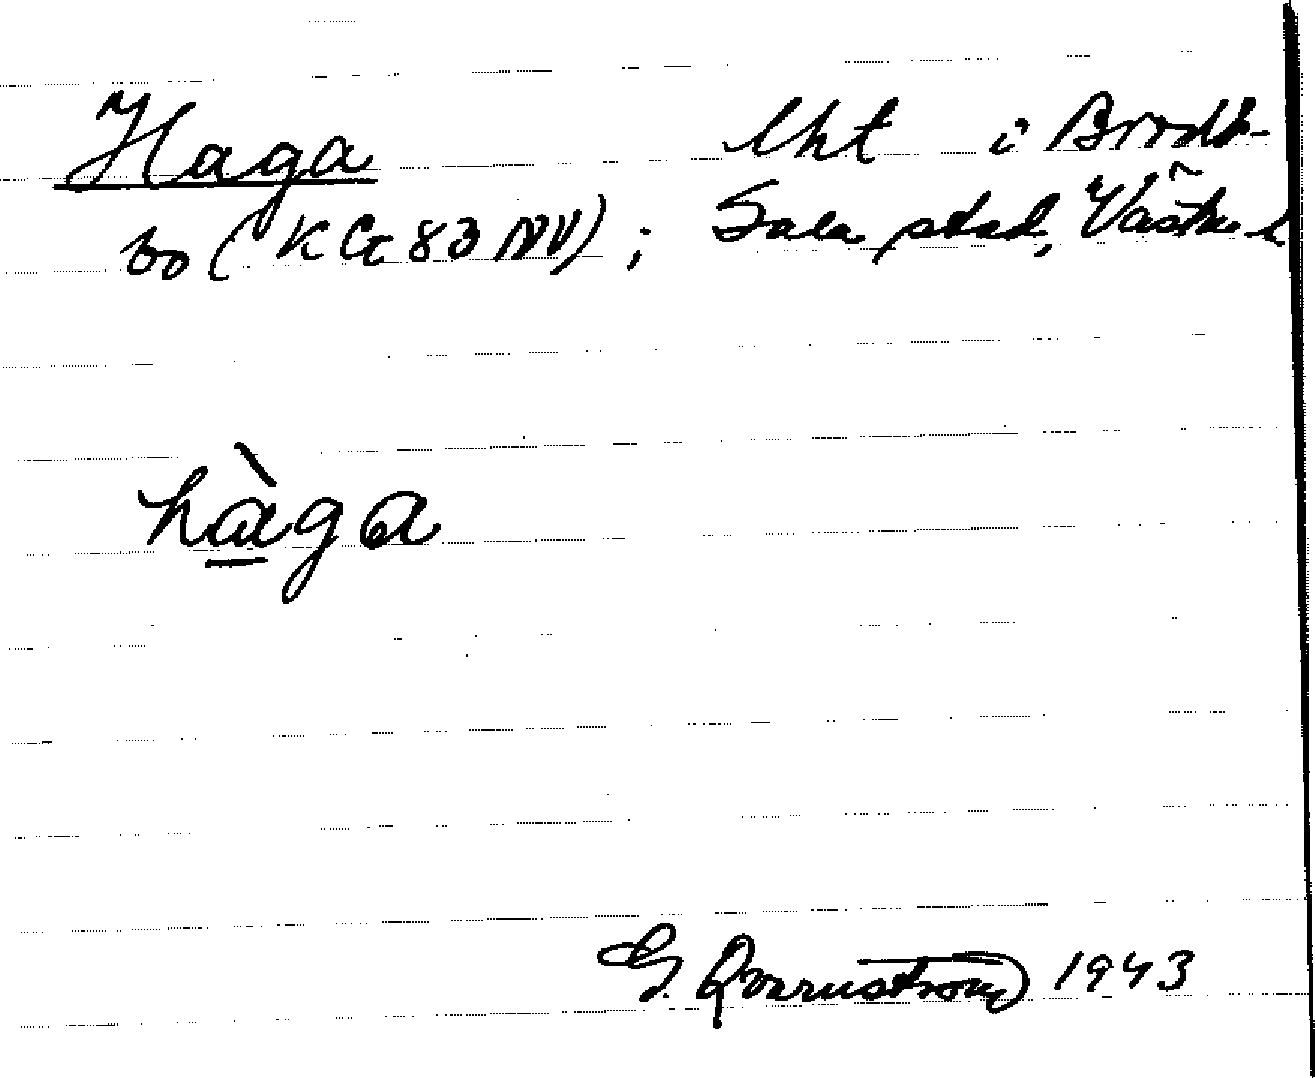 Haga lht i Brodd-
bo (KG 83 NV); Sala stad, Västm. l
hàga
G. Qvarnström 1943